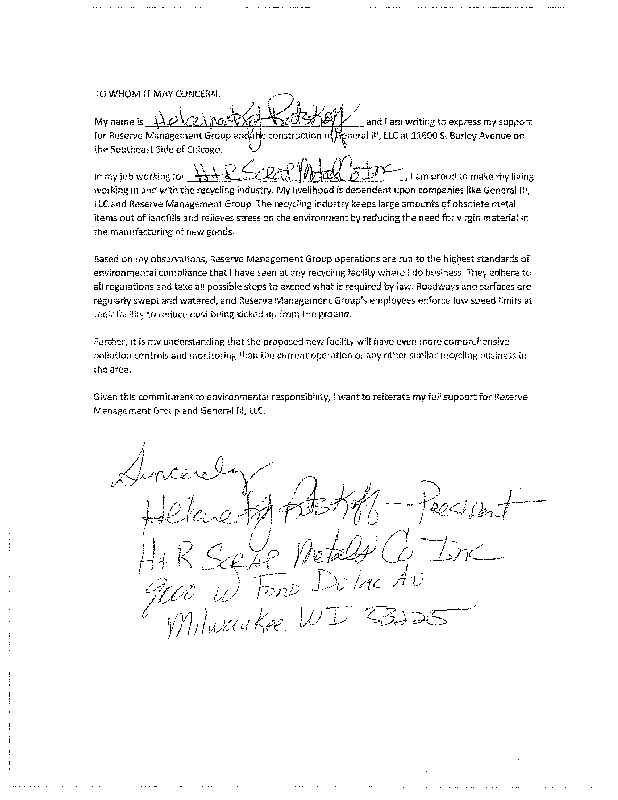 TO WHOM IT MAY CONCERN:
My name is and I am writing to express my support
for Reserve Management Group and the construction of General III, LLC at 11600 S. Burley Avenue on
the Southeast Side of Chicago.
In my job working for H+R Scrap Metals Co Inc, I am proud to make my living
working in and with the recycling industry. My livelihood is dependent upon companies like General III,
LLC and Reserve Management Group. The recycling industry keeps large amounts of obsolete metal
items out of landfills and relieves stress on the environment by reducing the need for virgin material in
the manufacturing of new goods.
Based on my observations, Reserve Management Group operations are run to the highest standards of
environmental compliance that I have seen at any recycling facility where I do business. They adhere to
all regulations and take all possible steps to exceed what is required by law. Roadways and surfaces are
regularly swept and watered, and Reserve Management Group's employees enforce low speed limits at
facility to reduce dust being kicked up from the ground.
Further, it is my understanding that the proposed new facility will have even more comprehensive
pollution controls and monitoring than the current operation or any other similar recycling business in
the area.
Given this commitment to environmental responsibility, I want to reiterate my full support for Reserve
Management Group and General III, LLC.
Sincerely
President
H+R Scrap Metals Co Inc
W Fond Du Lac Av
Milwaukee WI 53225